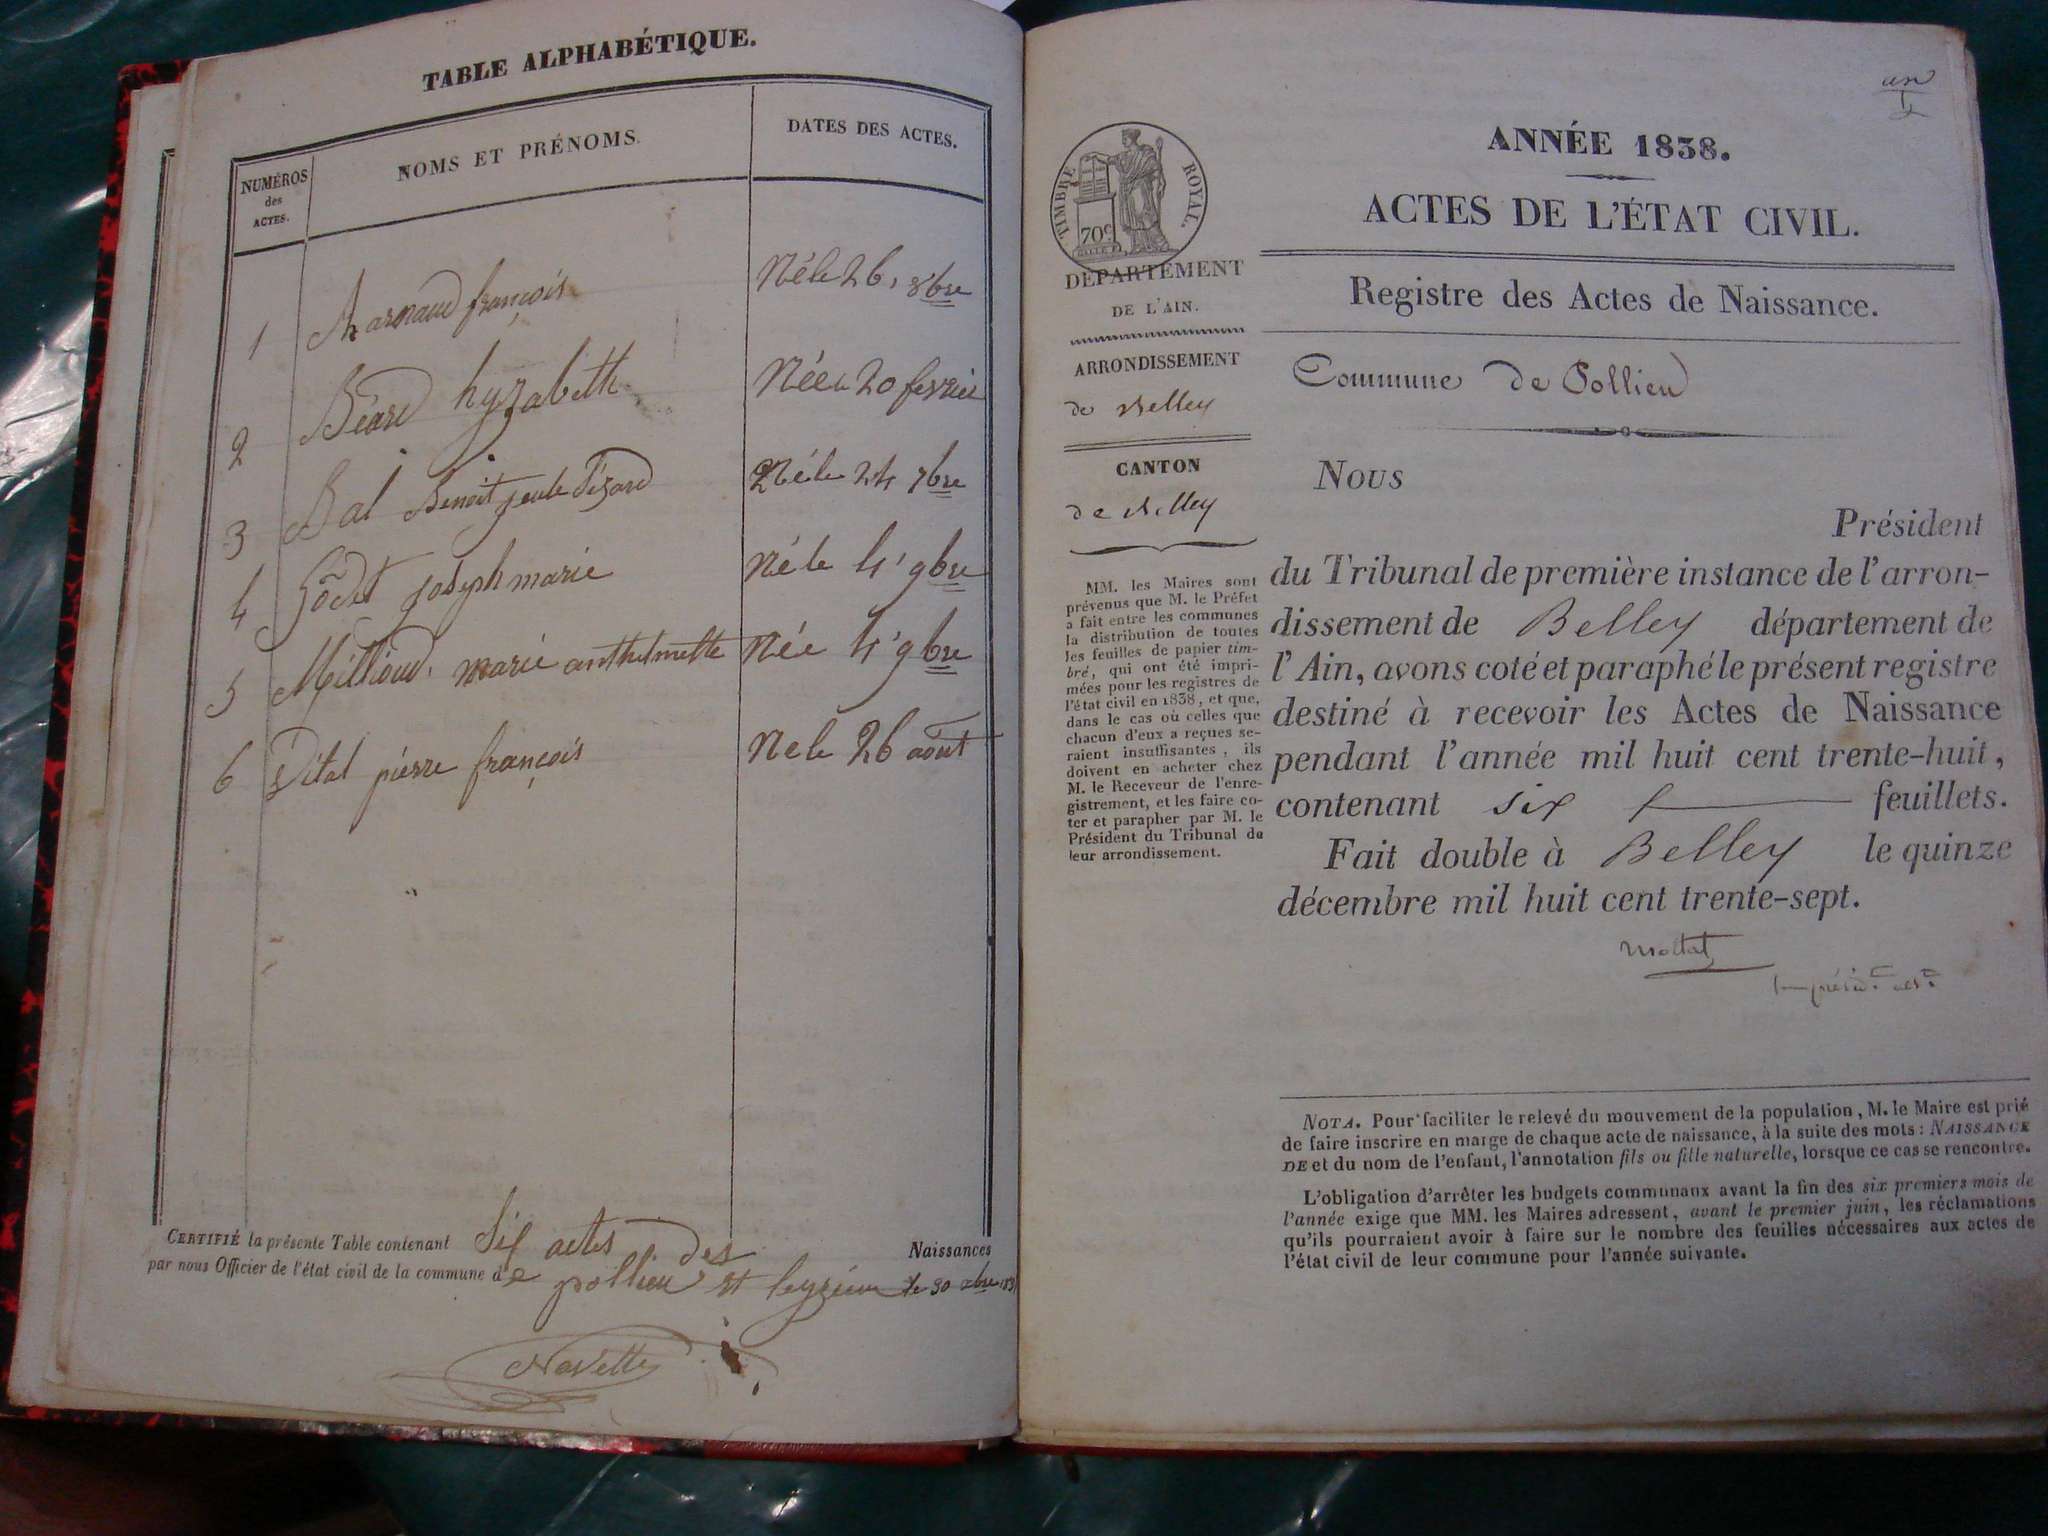 TABLE ALPHABÉTIQUE.
NUMÉROS des ACTES.
NOMS ET PRÉNOMS.
DATES DES ACTES.
1 françois Né le 26, 8bre
2 Béard hyzabeth Née le 20 fevrier
3 Bal Benoit Né le 24 7bre
4 joseph marie Né le 4 9bre
5 Millioud marie anthelmette Née 4 9bre
6 Vital pierre françois Né le 26 aout
CERTIFIÉ la présente Table contenant Six actes des Naissances
par nous Officier de l'état civil de la commune de pollieu st le 30 xbre
Navette
un
ANNÉE 1838.
ACTES DE L'ÉTAT CIVIL.
Registre des Actes de Naissance.
Commune de Pollieu
TIMBRE ROYAL.
70c
DÉPARTEMENT
DE L'AIN.
ARRONDISSEMENT
de Belley
CANTON
de Belley
MM. les Maires sont
prévenus que M. le Préfet
a fait entre les communes
la distribution de toutes
les feuilles de papier tim-
bré, qui ont été impri-
mées pour les registres de
l'état civil en 1838, et que,
dans le cas où celles que
chacun d'eux a reçues se-
raient insuffisantes, ils
doivent en acheter chez
M. le Receveur de l'enre-
gistrement, et les faire co-
ter et parapher par M. le
Président du Tribunal de
leur arrondissement.
NOUS
Président
du Tribunal de première instance de l'arron-
dissement de Belley département de
l'Ain, avons coté et paraphé le présent registre
destiné à recevoir les Actes de Naissance
pendant l'année mil huit cent trente-huit,
contenant six feuillets.
Fait double à Belley le quinze
décembre mil huit cent trente-sept.
NOTA. Pour faciliter le relevé du mouvement de la population, M. le Maire est prié
de faire inscrire en marge de chaque acte de naissance, à la suite des mots : NAISSANCE
DE et du nom de l'enfant, l'annotation fils ou fille naturelle, lorsque ce cas se rencontre.
L'obligation d'arrêter les budgets communaux avant la fin des six premiers mois de
l'année exige que MM. les Maires adressent, avant le premier juin, les réclamations
qu'ils pourraient avoir à faire sur le nombre des feuilles nécessaires aux actes de
l'état civil de leur commune pour l'année suivante.